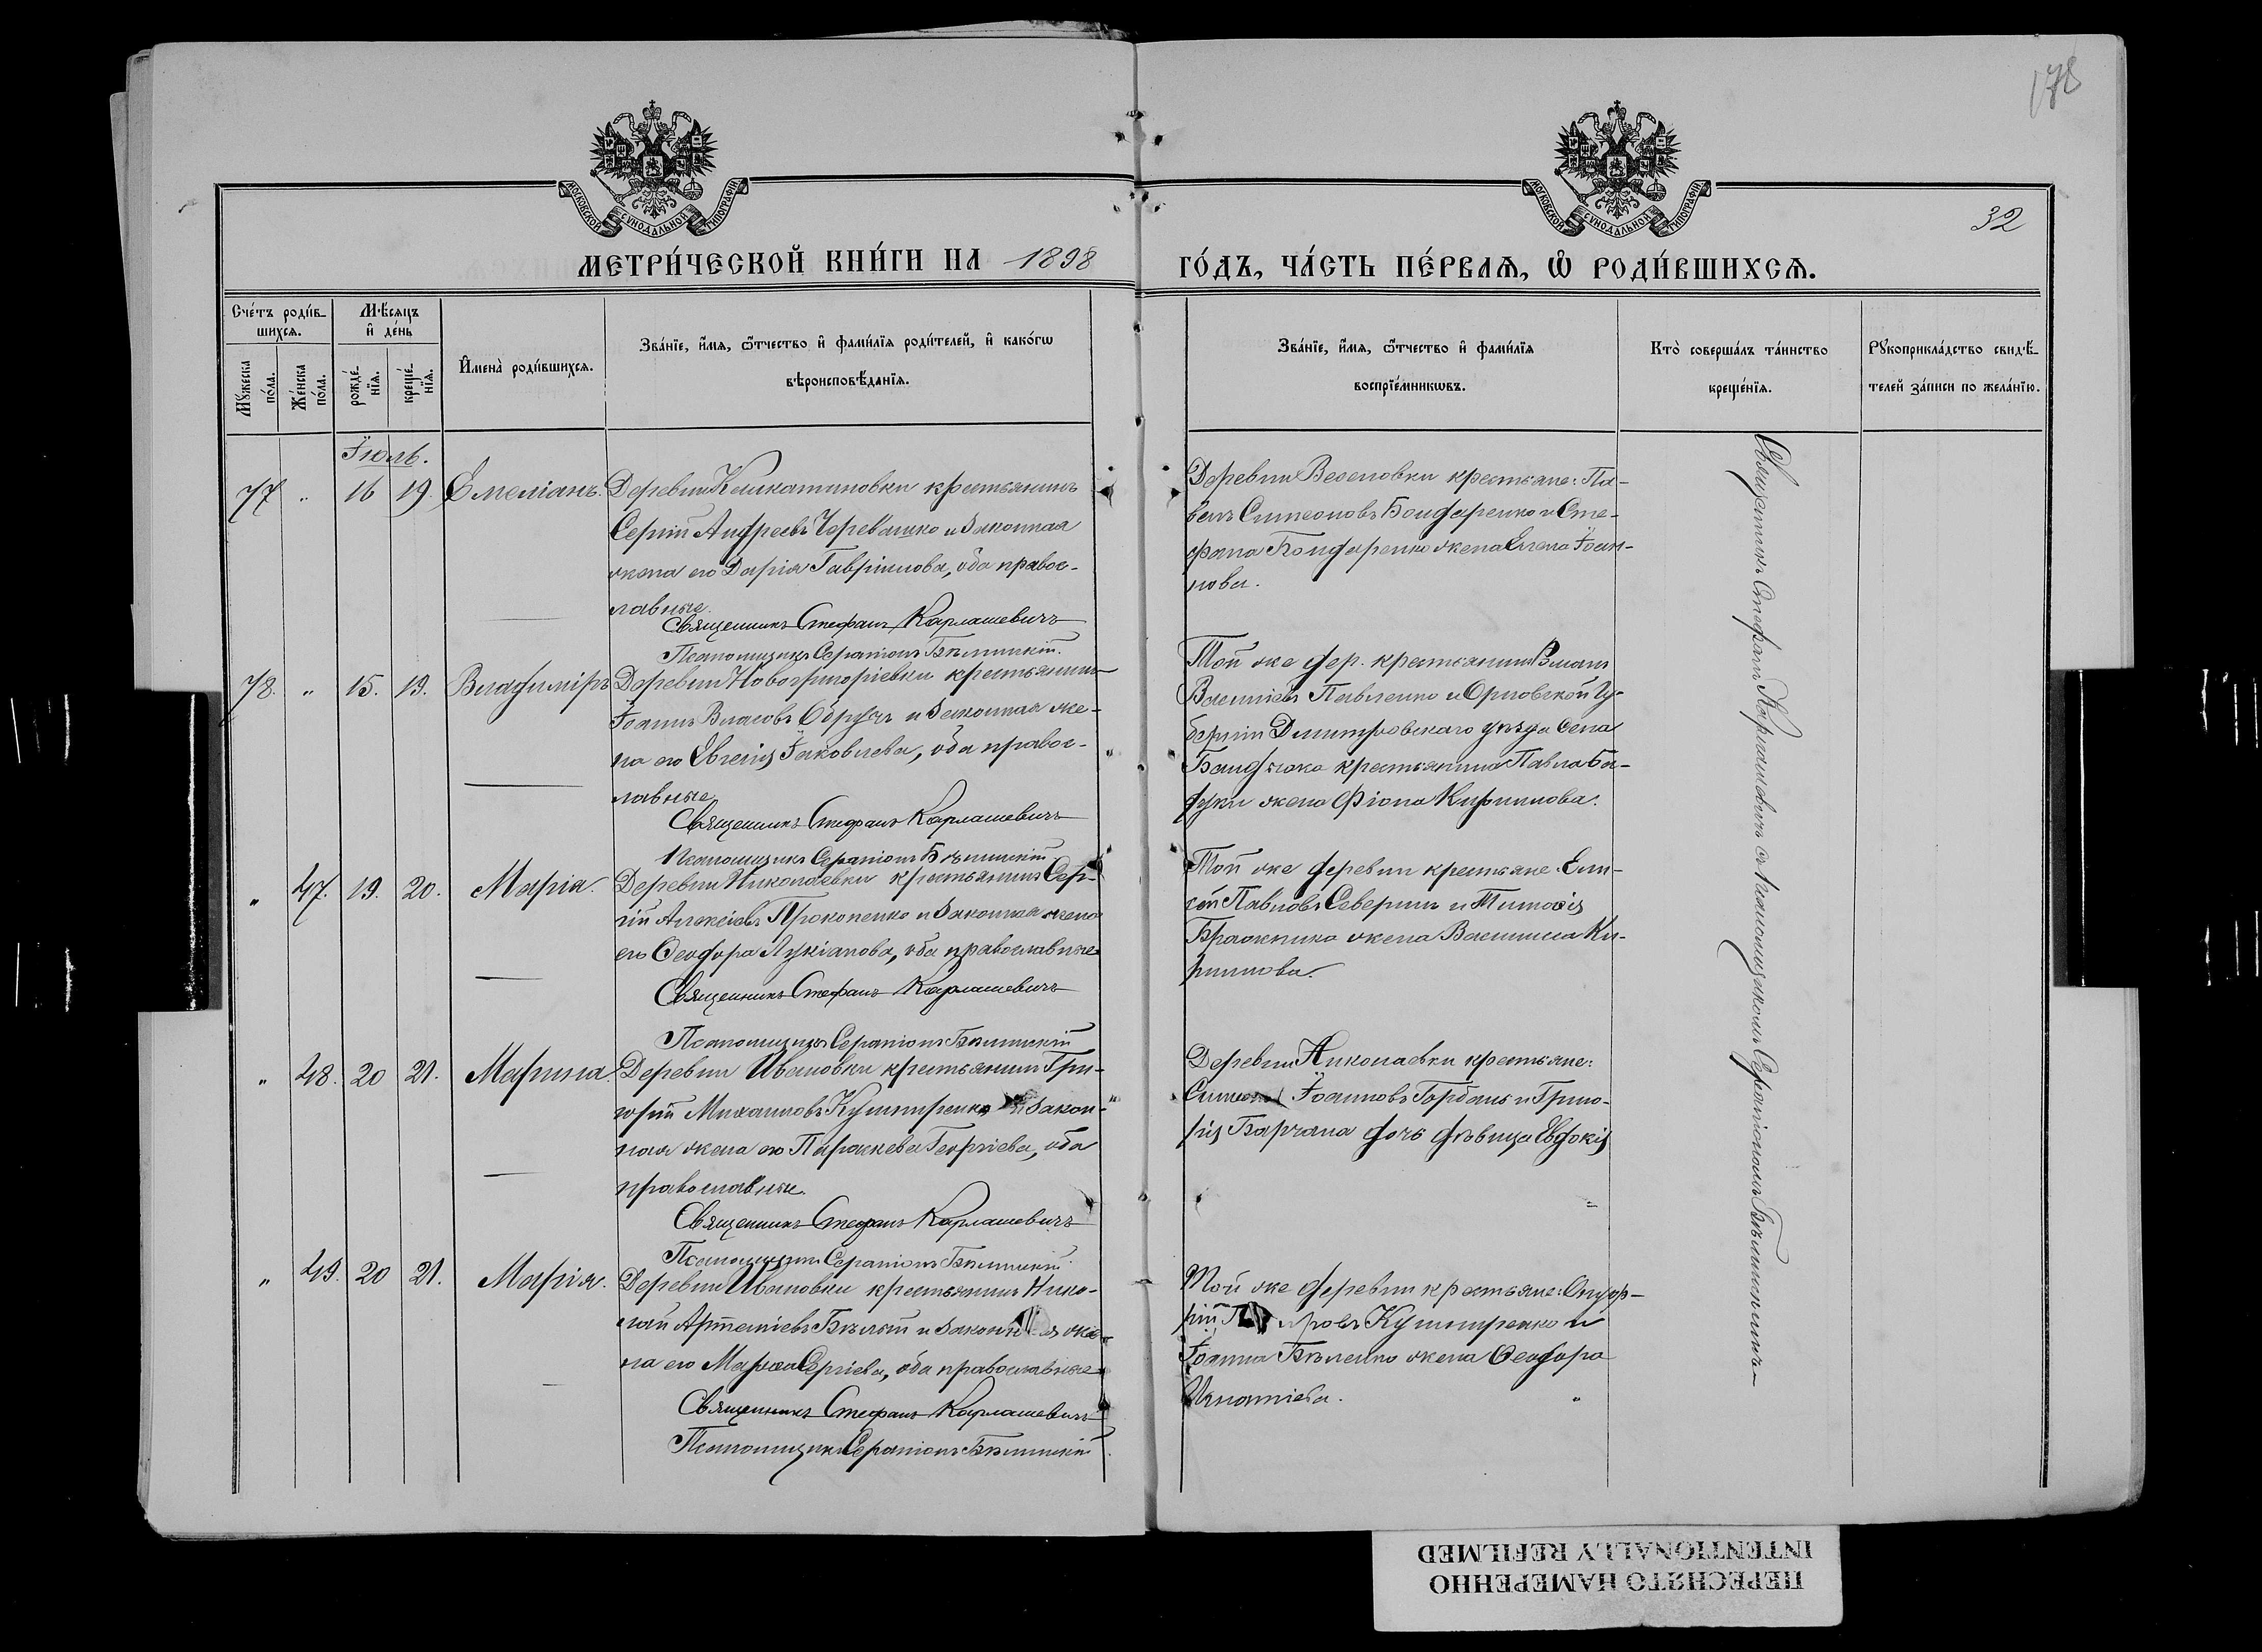 178
МОСКОВСКОЙ СѴНОДАЛЬНОЙ ТИПОГРАФІИ
МОСКОВСКОЙ СѴНОДАЛЬНОЙ ТИПОГРАФІИ
32
МЕТРИ́ЧЕСКОЙ КНИ́ГИ НА 1898
ГО́ДЪ, ЧА́СТЬ ПЕ́РВАѦ, Ѽ РОДИ́ВШИХСѦ.
Сче́тъ роди́в-
шихсѧ.
Мꙋжеска по́ла.
Же́нска по́ла.
Мѣ́сѧцъ
и҆ де́нь
рожде́-
нїѧ.
креще́-
нїѧ.
И҆мена̀ роди́вшихсѧ.
Зва́нїе, и҆́мѧ, ѻ҆́тчество и҆ фами́лїѧ роди́телей, и҆ како́гѡ
вѣроисповѣ́данїѧ.
Зва́нїе, и҆́мѧ, ѻ҆́тчество и҆ фами́лїѧ
воспрїе́мникѡвъ.
Кто̀ соверша́лъ та́инство
креще́нїѧ.
Рꙋкоприкла́дство свидѣ́-
телей за́писи по жела́нїю.
Іюль.
77 " 16 19. Емеліанъ.
Деревни крестьянинъ
Сергій Андреевъ и законная
жена его Дарія Гавріилова, оба правос-
лавные.
Священникъ Стефанъ Карлашевичъ
Псаломщикъ Серапіонъ Бѣлинскій.
Деревни Веселовки крестьяне: Па-
велъ Симеоновъ Бондаренко и Сте-
фана Бондаренко жена Елена Іоан-
нова.
78. " 15. 19. Владиміръ
Деревни Новогригоріевки крестьянинъ
Іоаннъ Власовъ и законная же-
на его Іаковлева, оба правос-
лавные
Священникъ Стефанъ Карлашевичъ
Псаломщикъ Серапіонъ Бѣлинскій
Той же дер. крестьянинъ
Василіевъ Павленко и Орловской Гу-
берніи Дмитровскаго уѣзда села
крестьянина Павла
жена Кириллова.
" 47. 19. 20. Марія.
Деревни Николаевки крестьянинъ Сер-
гій Алексіевъ Прокопенко и законная жена
его Ѳеодора Лукіанова, оба православные
Священникъ Стефанъ Карлашевичъ
Псаломщикъ Серапіонъ Бѣлинскій
Той же деревни крестьяне: Ели-
сей Павловъ Северинъ и Тимоѳія
Бражника жена Василиса Ки-
риллова.
" 48. 20 21. Марина.
Деревни Ивановки крестьянинъ Гри-
горій Михаиловъ Кушниренко и закон-
ная жена его Параскева Георгіева, оба
православные.
Священникъ Стефанъ Карлашевичъ
Псаломщикъ Серапіонъ Бѣлинскій
Деревни Николаевки крестьяне:
Симеонъ Іоанновъ Горбань и Григо-
рія дочь дѣвица Евдокія
" 49. 20 21. Марія.
Деревни Ивановки крестьянинъ Нико-
лай Артеміевъ Бѣлый и законная же-
на его Сергіева, оба православные
Священникъ Стефанъ Карлашевичъ
Псаломщикъ Серапіонъ Бѣлинскій
Той же деревни крестьяне:
Кушниренко и
Іоанна Бѣленко жена Ѳеодора
Игнатіева.
Священникъ Стефанъ Карлашевичъ съ псаломщикомъ Серапіономъ Бѣлинскимъ
ПЕРЕСНЯТО НАМЕРЕННО
INTENTIONALLY REFILMED